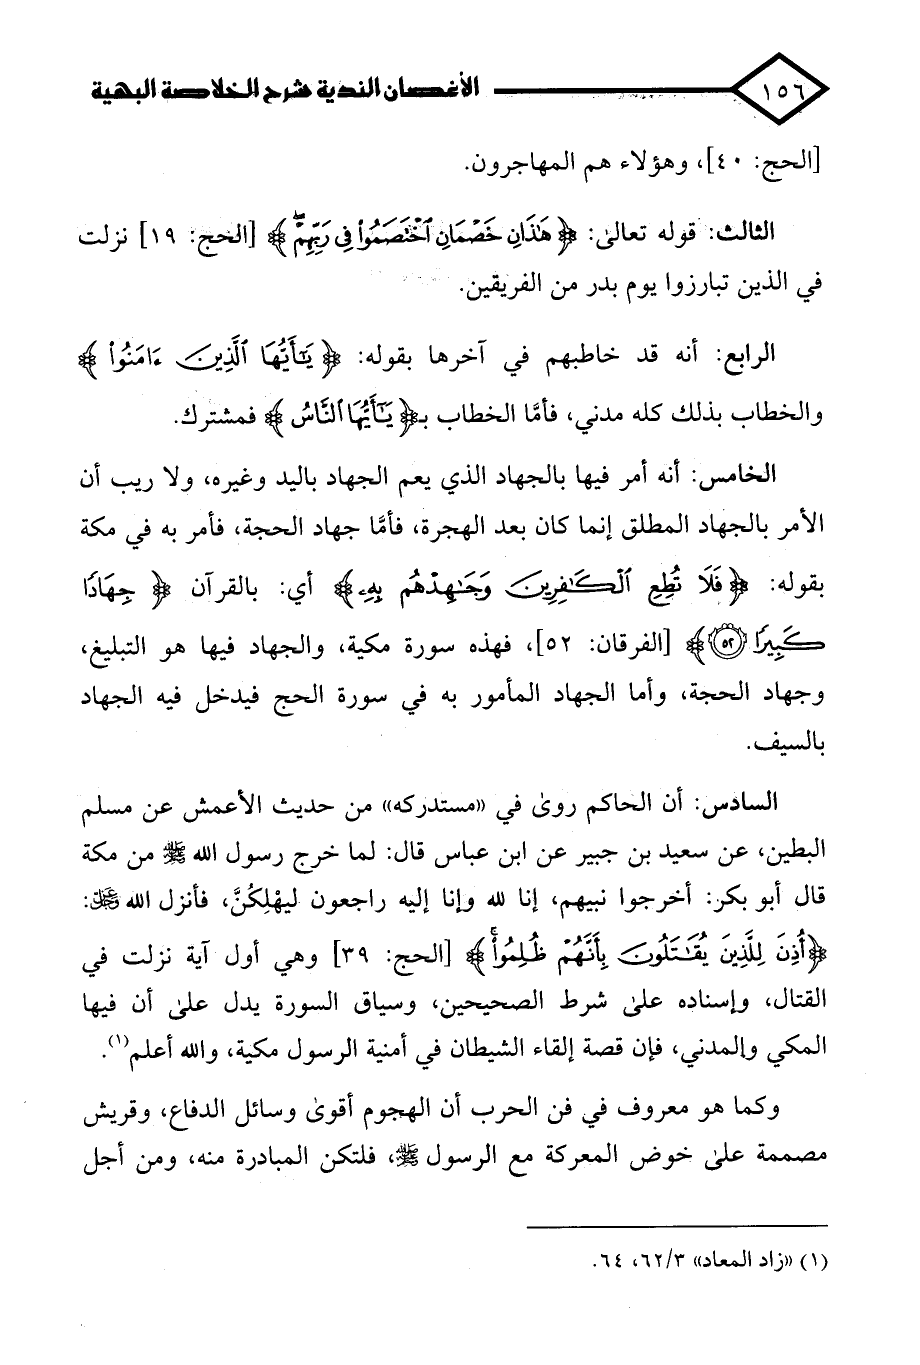 ١٥٦ الأغصان الندية شرح الخلاصة البهية
[الحج: ٤٠]، وهؤلاء هم المهاجرون.
الثالث: قوله تعالىٰ: ﴿هَٰذَانِ خَصْمَانِ ٱخْتَصَمُوا۟ فِى رَبِّهِمْ ۖ﴾ [الحج: ١٩] نزلت
في الذين تبارزوا يوم بدر من الفريقين.
الرابع: أنه قد خاطبهم في آخرها بقوله: ﴿يَٰٓأَيُّهَا ٱلَّذِينَ ءَامَنُوا۟﴾
والخطاب بذلك كله مدني، فأمَّا الخطاب بـ﴿يَٰٓأَيُّهَا ٱلنَّاسُ﴾ فمشترك.
الخامس: أنه أمر فيها بالجهاد الذي يعم الجهاد باليد وغيره، ولا ريب أن
الأمر بالجهاد المطلق إنما كان بعد الهجرة، فأمَّا جهاد الحجة، فأمر به في مكة
بقوله: ﴿فَلَا تُطِعِ ٱلْكَٰفِرِينَ وَجَٰهِدْهُم بِهِۦ﴾ أي: بالقرآن ﴿جِهَادًا
كَبِيرًا ٥٢﴾ [الفرقان: ٥٢]، فهذه سورة مكية، والجهاد فيها هو التبليغ،
وجهاد الحجة، وأما الجهاد المأمور به في سورة الحج فيدخل فيه الجهاد
بالسيف.
السادس: أن الحاكم روىٰ في «مستدركه» من حديث الأعمش عن مسلم
البطين، عن سعيد بن جبير عن ابن عباس قال: لما خرج رسول الله ﷺ من مكة
قال أبو بكر: أخرجوا نبيهم، إنا لله وإنا إليه راجعون ليهْلِكُنَّ، فأنزل الله ﷻ:
﴿أُذِنَ لِلَّذِينَ يُقَٰتَلُونَ بِأَنَّهُمْ ظُلِمُوا۟ ۚ﴾ [الحج: ٣٩] وهي أول آية نزلت في
القتال، وإسناده علىٰ شرط الصحيحين، وسياق السورة يدل علىٰ أن فيها
المكي والمدني، فإن قصة إلقاء الشيطان في أمنية الرسول مكية، والله أعلم(١).
وكما هو معروف في فن الحرب أن الهجوم أقوىٰ وسائل الدفاع، وقريش
مصممة علىٰ خوض المعركة مع الرسول ﷺ، فلتكن المبادرة منه، ومن أجل
(١) «زاد المعاد» ٦٢/٣، ٦٤.